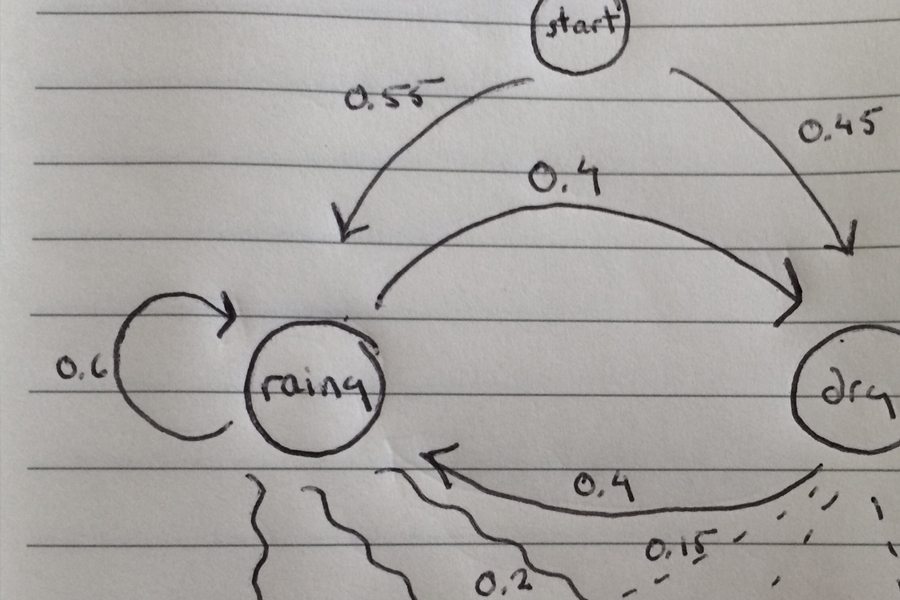 start
0.55
0.45
0.4
0.6
rainy
dry
0.4
0.15
0.2